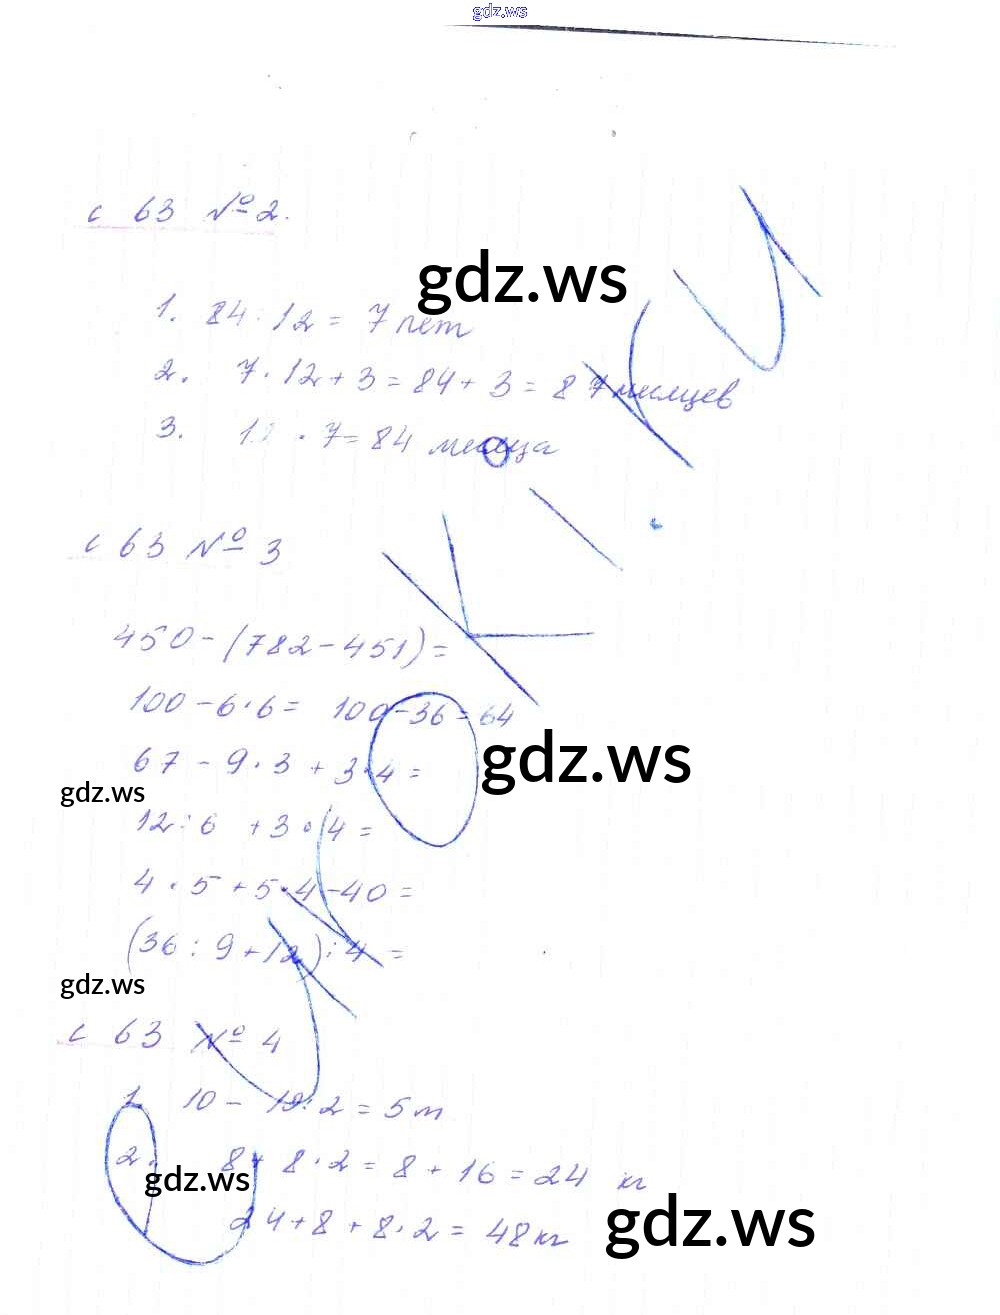 gdz.ws
с 63 №2.
gdz.ws
1. 84 : 12 = 7 лет
2. 7 · 12 + 3 = 84 + 3 = 87 месяцев
3. 12 · 7 = 84 месяца
с 63 № 3
450 - (782 - 451) =
100 - 6 · 6 = 100 - 36 = 64
gdz.ws
67 - 9 · 3 + 3 · 4 =
gdz.ws
12 : 6 + 3 · 4 =
4 · 5 + 5 · 4 - 40 =
(36 : 9 + 12) : 4 =
gdz.ws
с 63 № 4
1. 10 - 10 : 2 = 5 т
2. 8 + 8 · 2 = 8 + 16 = 24 кг
gdz.ws
24 + 8 + 8 · 2 = 48 кг
gdz.ws